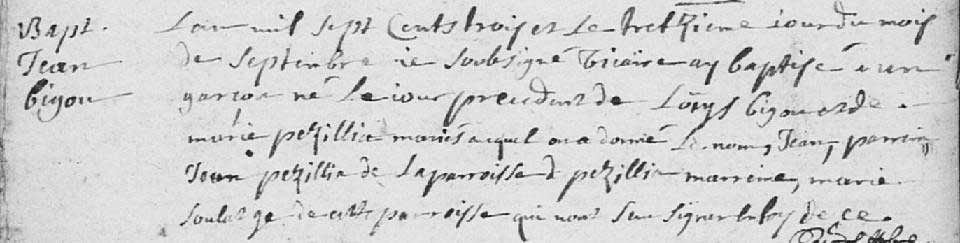 Bapt.
Jean
bigou
L'an mil sept Cents trois et le tretzieme iour du mois
de septembre ie soubsigné vicaire ay baptisé a un
garçon né le iour precedent de Loüys bigou et de
marie pezillia mariés auquel on a donné le nom, Jean, parrein,
Jean pezillia de la parroisse d pezillia marrene, marie
soulatge de cette parroisse qui nont seu signer en foy de ce.